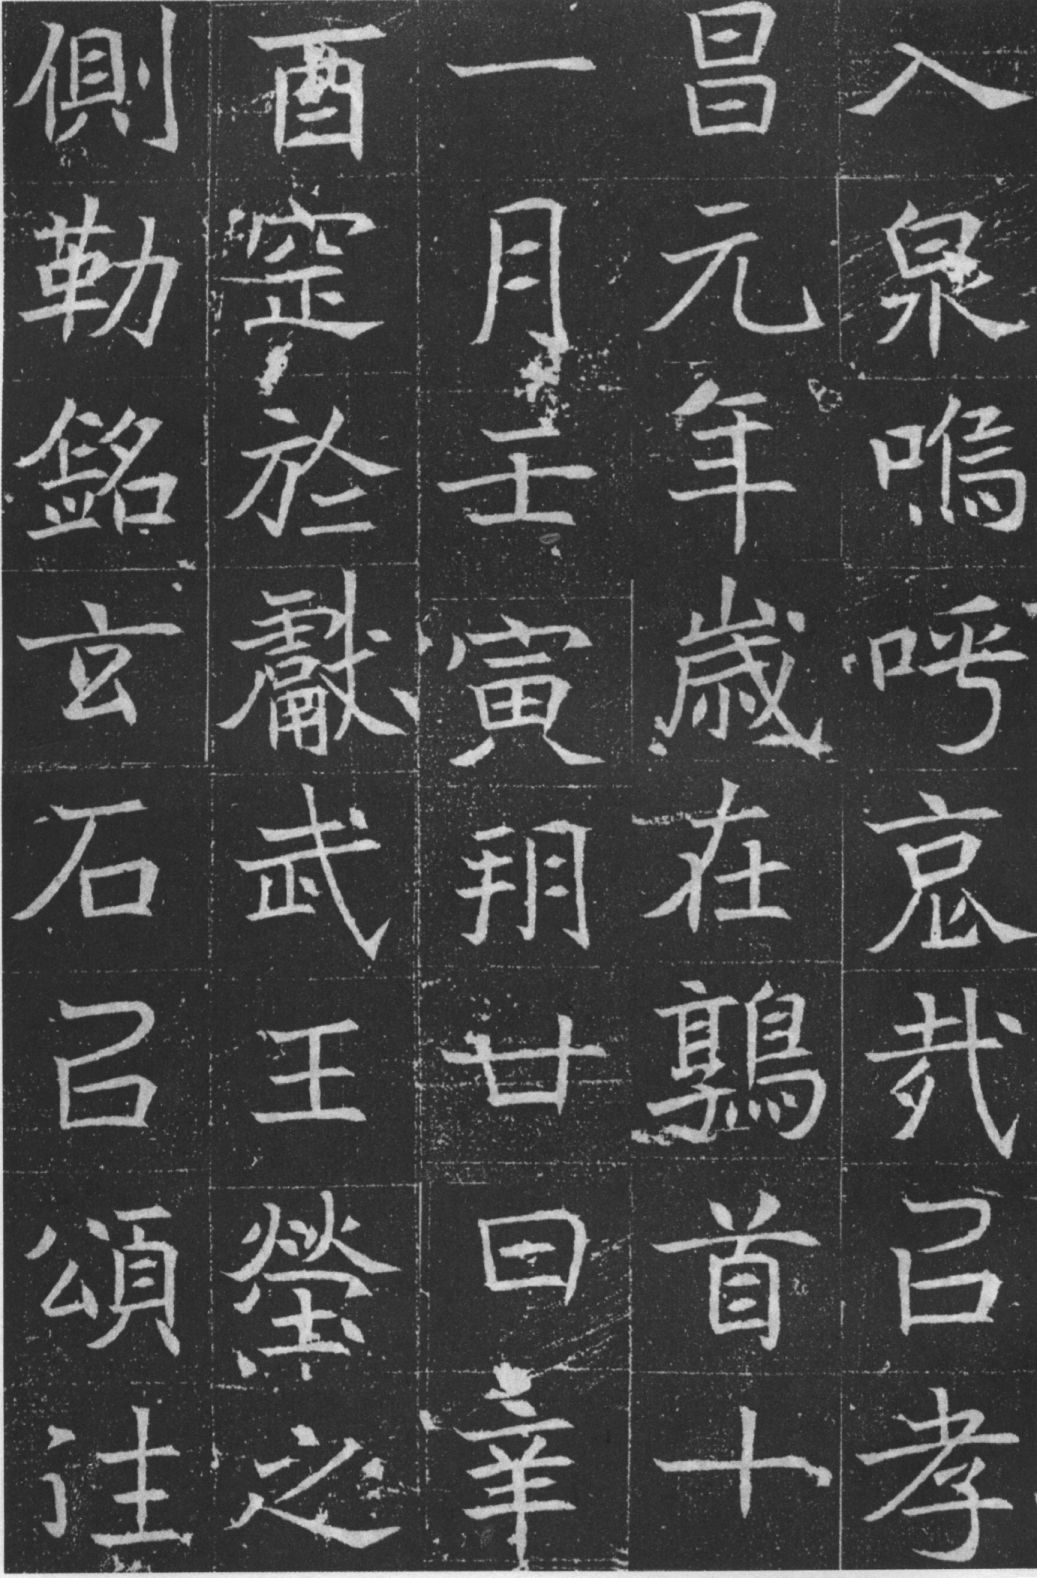 入泉嗚呼哀哉㠯孝
昌元年歲在鶉首十
一月壬寅朔廿日辛
酉窆於獻武王塋之
側勒銘玄石㠯頌